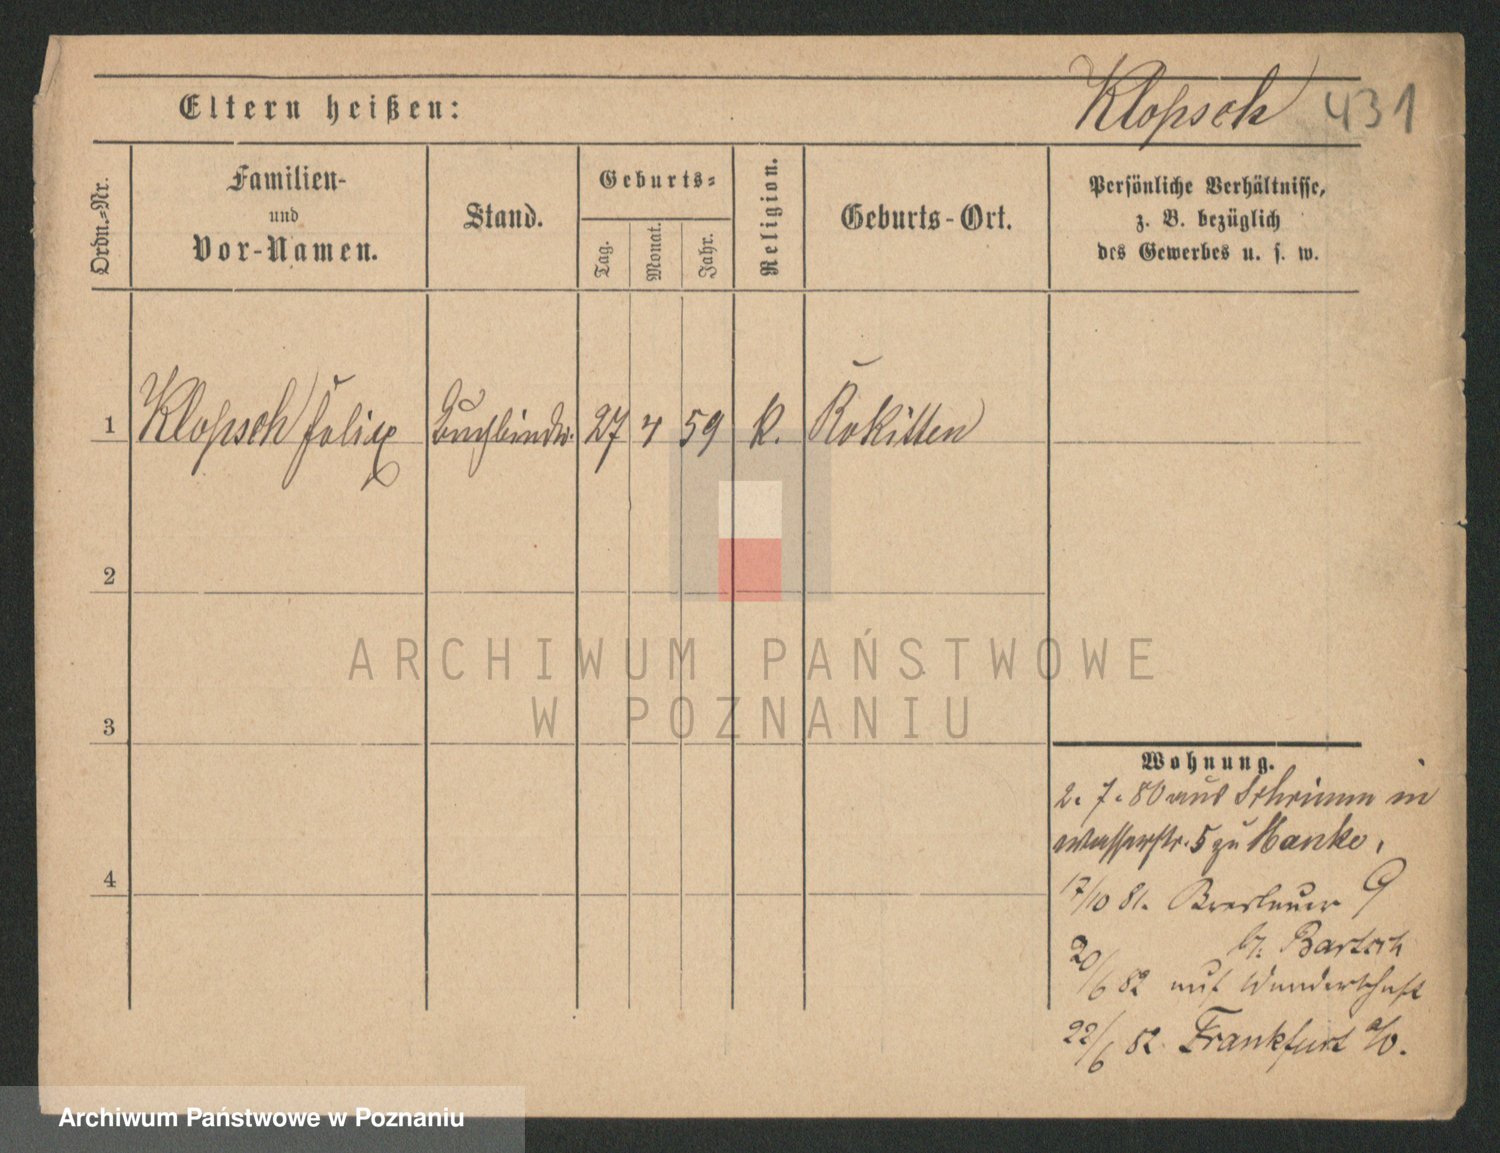 Klopsch 431
Eltern heißen:
Ordn.=Nr.
Familien-
und
Vor-Namen.
Stand.
Geburts=
Tag.
Monat.
Jahr.
Religion.
Geburts-Ort.
Persönliche Verhältnisse,
z. B. bezüglich
des Gewerbes u. s. w.
1 Klopsch Felix Buchbinder. 27 4 59 k. Rokitten
2
3
4
Wohnung.
2. 7. 80 aus Schrimm in
Wasserstr. 5 zu Manke.
17/10 81. Breslauer 9
b. Bartsch
20/6 82 auf Wanderschaft
22/6 82 Frankfurt a/O.
ARCHIWUM PAŃSTWOWE
W POZNANIU
Archiwum Państwowe w Poznaniu